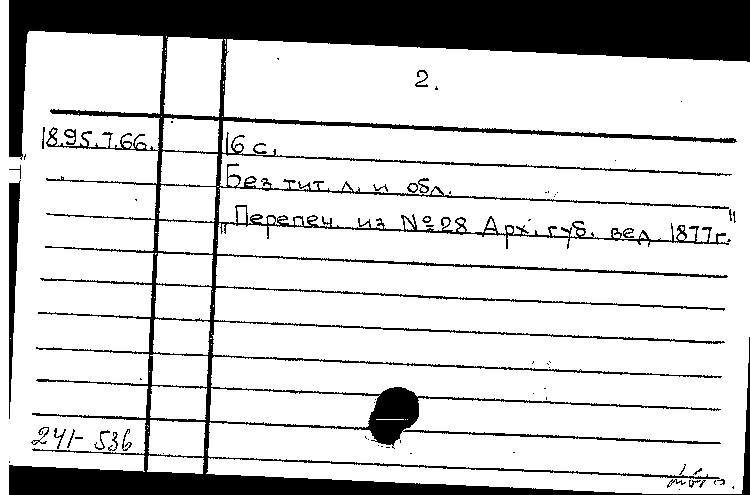 2.
18.95.7.66.
16 с.
Без тит. л. и обл.
„Перепеч. из №28 Арх. губ. вед. 1877г."
241-536